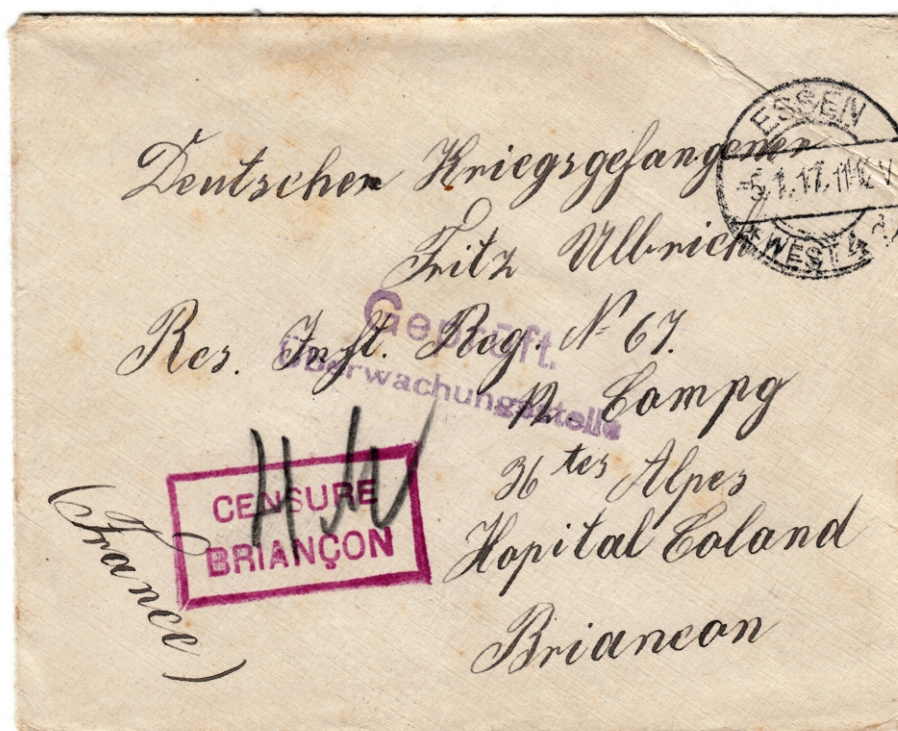 Deutscher Kriegsgefangener
Fritz Ulbrich
Res. Inft. Reg. № 67.
12. Compg
Htes Alpes
Hopital Coland
Briancon
(France)
ESSEN
5.1.17. 11-12 V
* WEST 4
Geprüft.
Überwachungsstelle
CENSURE
BRIANÇON